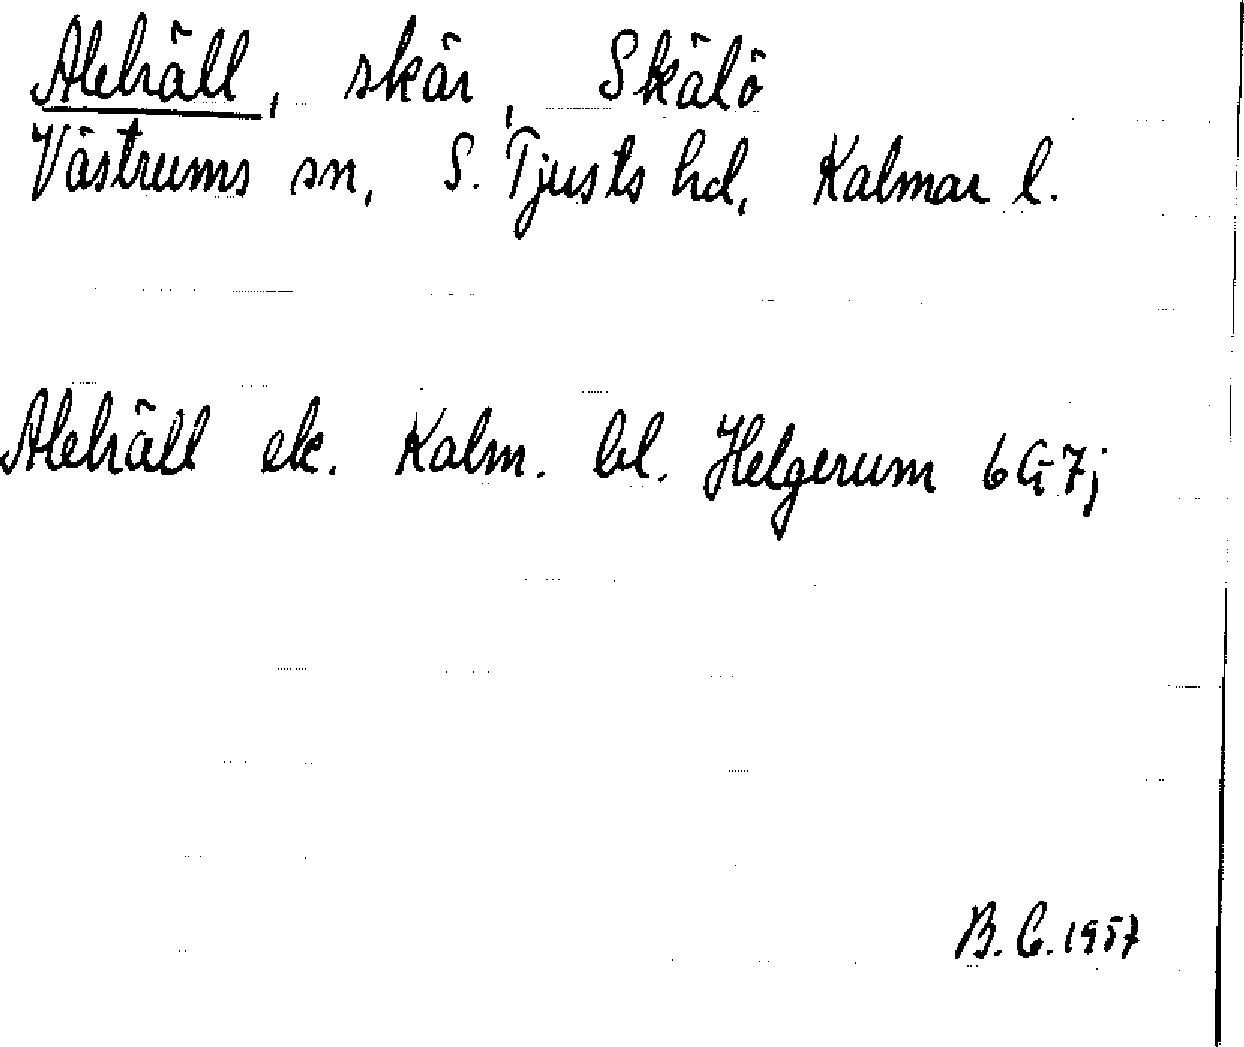 Alehäll, skär, Skälö
Västrums sn, S. Tjusts hd, Kalmar l.
Alehäll ek. Kalm. bl. Helgerum 6G7j
B.C. 1957